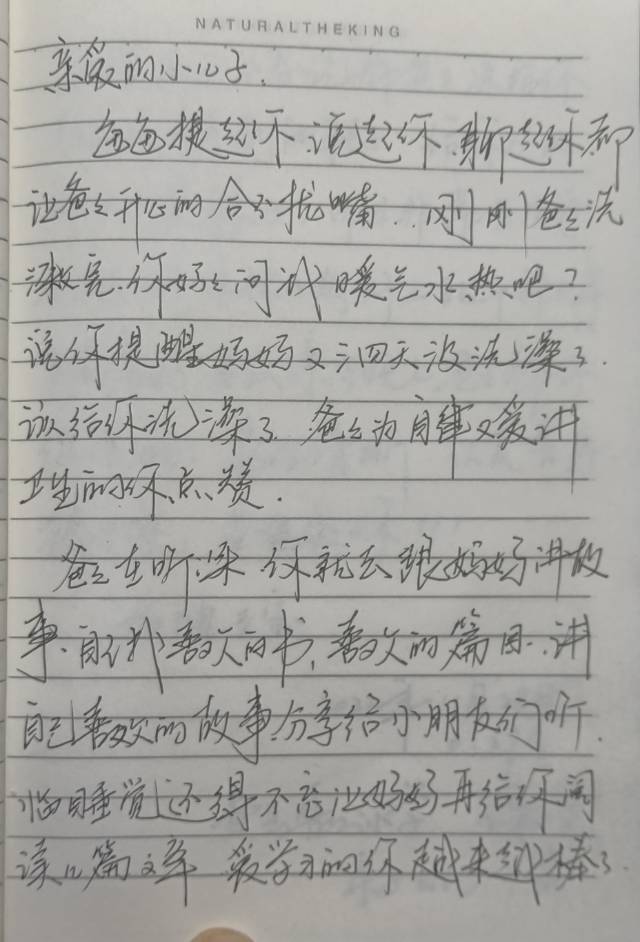 NATURALTHEKING
亲爱的小儿子.
每每提起你 说起你 聊起你都
让爸爸开心的合不拢嘴..刚刚爸爸洗
漱完.你好好问我暖气水热吧?
说你提醒妈妈又三四天没洗澡了.
该给你洗澡了.爸爸为自律又爱讲
卫生的你点赞.
爸爸在听课 你就去跟妈妈讲故
事.自己找喜欢的书,喜欢的篇目.讲
自己喜欢的故事分享给小朋友们听.
临睡觉还得不忘让妈妈再给你阅
读几篇文章 爱学习的你越来越棒了.